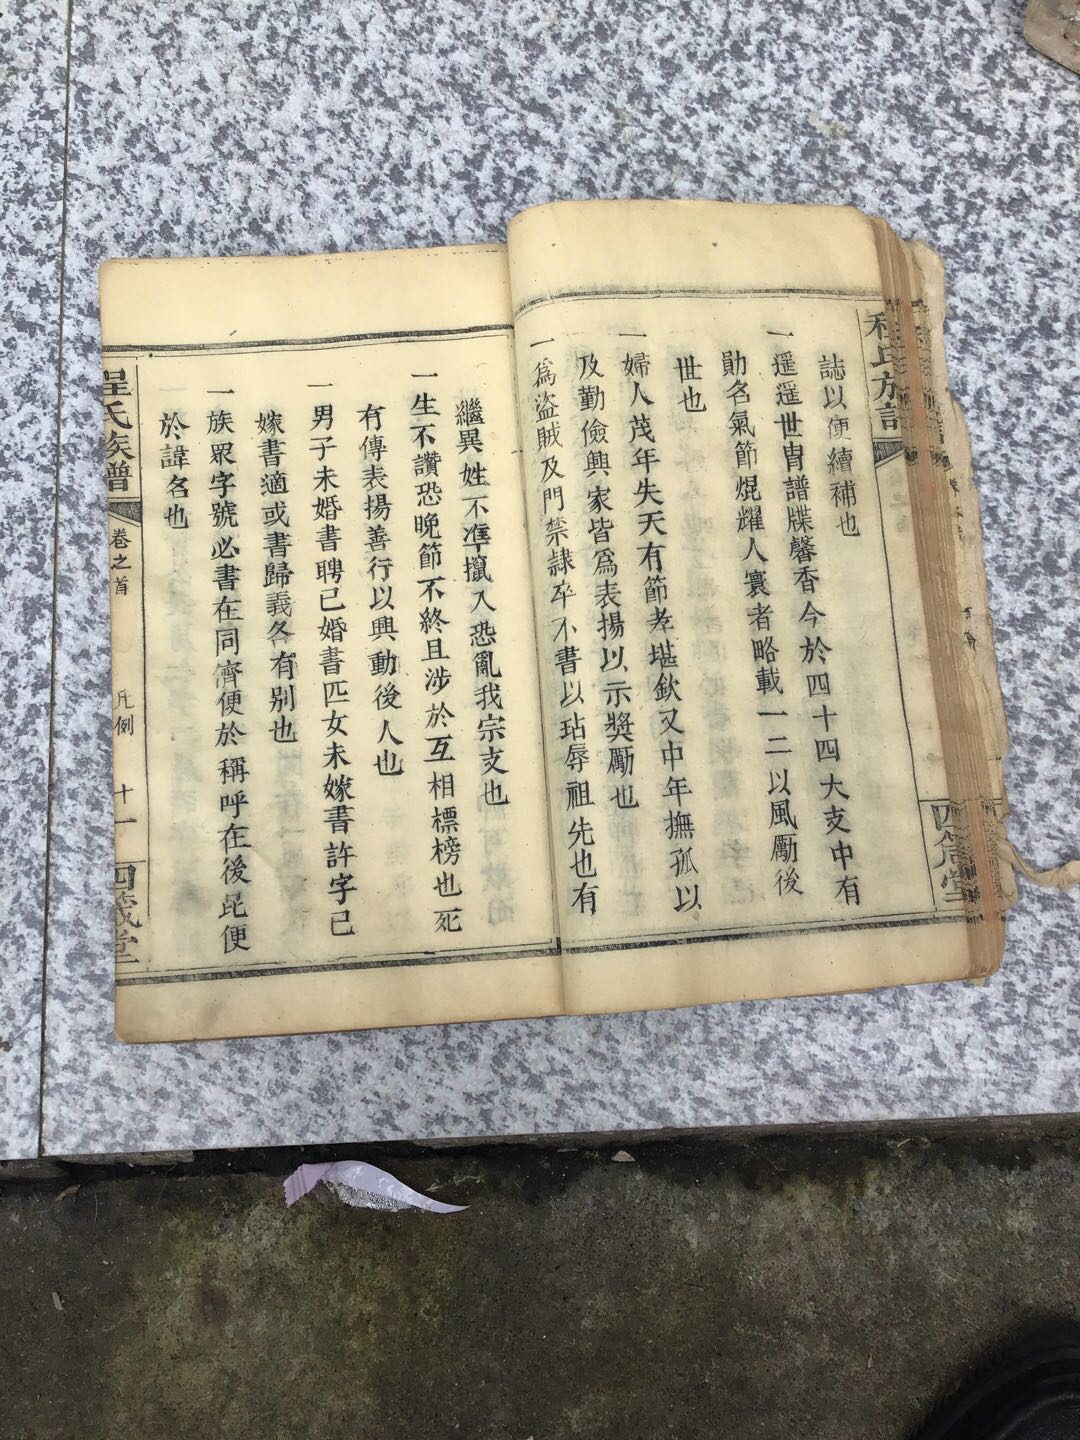 程氏族譜
四箴堂
誌以便續補也
一遥遥世胄譜牒馨香今於四十四大支中有
勛名氣節焜耀人寰者略載一二以風勵後
世也
一婦人茂年失天有節孝堪欽又中年撫孤以
及勤儉興家皆為表揚以示獎勵也
一為盜賊及門禁隸卒不書以玷辱祖先也有
繼異姓不準攛入恐亂我宗支也
一生不讚恐晚節不終且涉於互相標榜也死
有傳表揚善行以興動後人也
一男子未婚書聘已婚書匹女未嫁書許字已
嫁書適或書歸義各有别也
一族眾字號必書在同儕便於稱呼在後昆便
於諱名也
程氏族譜
卷之首
凡例
十一
四箴堂